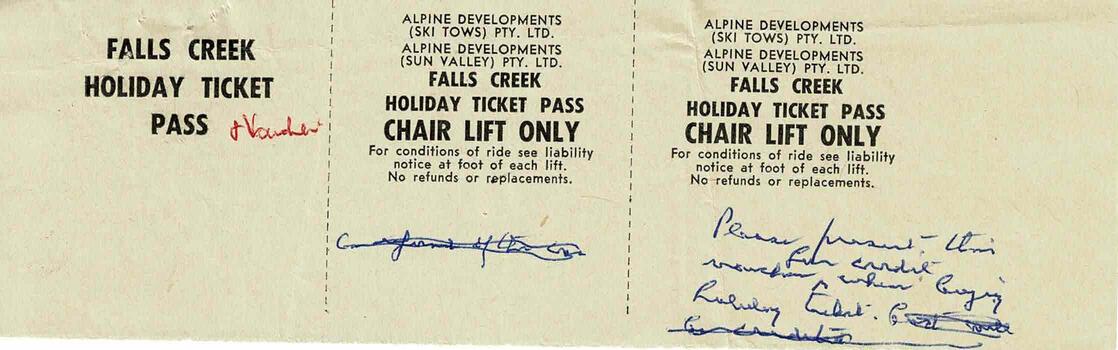 FALLS CREEK
HOLIDAY TICKET
PASS & Voucher
ALPINE DEVELOPMENTS
(SKI TOWS) PTY. LTD.
ALPINE DEVELOPMENTS
(SUN VALLEY) PTY. LTD.
FALLS CREEK
HOLIDAY TICKET PASS
CHAIR LIFT ONLY
For conditions of ride see liability
notice at foot of each lift.
No refunds or replacements.
ALPINE DEVELOPMENTS
(SKI TOWS) PTY. LTD.
ALPINE DEVELOPMENTS
(SUN VALLEY) PTY. LTD.
FALLS CREEK
HOLIDAY TICKET PASS
CHAIR LIFT ONLY
For conditions of ride see liability
notice at foot of each lift.
No refunds or replacements.
Please present this
for credit
voucher when buying
holiday ticket.